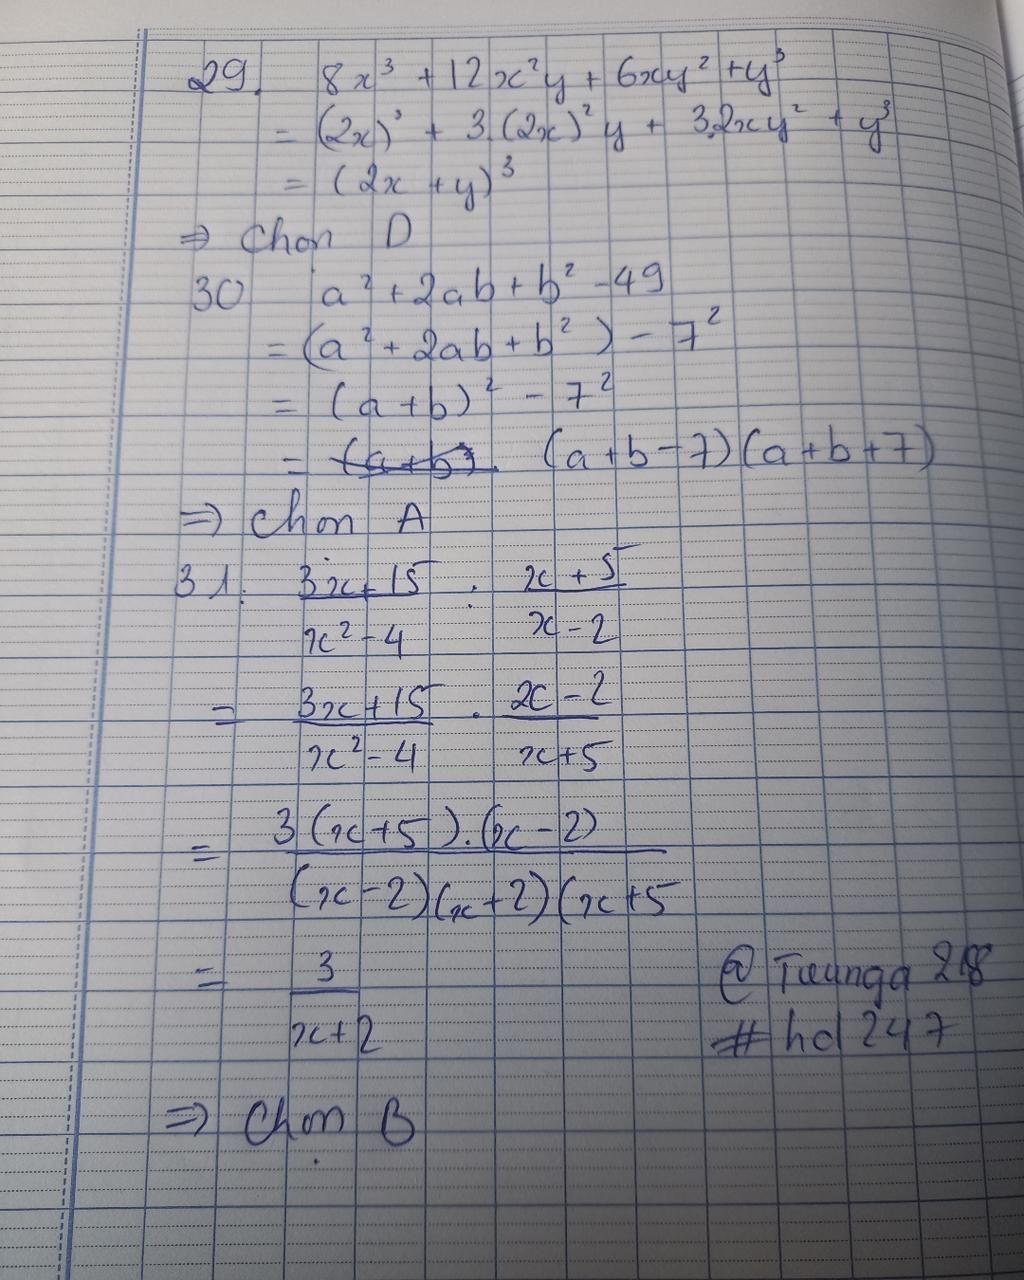 29. 8x³ + 12x²y + 6xy² + y³
= (2x)³ + 3.(2x)²y + 3.2xy² + y³
= (2x + y)³
⇒ Chon D
30 a² + 2ab + b² - 49
= (a² + 2ab + b²) - 7²
= (a + b)² - 7²
= (a+b). (a + b - 7)(a + b + 7)
⇒ Chon A
31. 3x + 15 : x + 5
x² - 4 x - 2
= 3x + 15 . x - 2
x² - 4 x + 5
= 3(x + 5).(x - 2)
(x - 2)(x + 2)(x + 5
= 3
x + 2
@
#hd247
⇒ Chon B